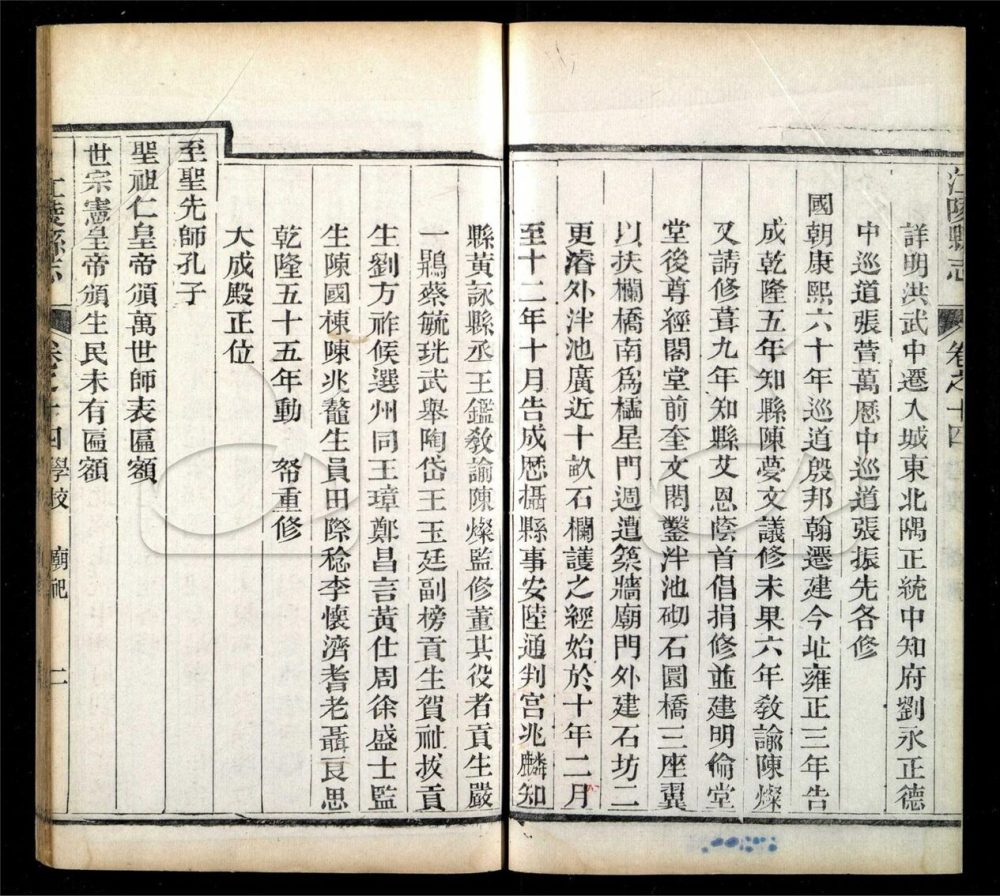 江陵縣志 卷之十四
詳明洪武中遷入城東北隅正統中知府劉永正德
中巡道張萱萬厯中巡道張振先各修
國朝康熙六十年巡道殷邦翰遷建今址雍正三年告
成乾隆五年知縣陳夢文議修未果六年敎諭陳燦
又請修葺九年知縣艾恩蔭首倡捐修並建明倫堂
堂後尊經閣堂前奎文閣鑿泮池砌石圜橋三座翼
以扶欄橋南爲櫺星門週遭築牆廟門外建石坊二
更濬外泮池廣近十畝石欄護之經始於十年二月
至十二年十月告成厯攝縣事安陸通判宫兆麟知
縣黃詠縣丞王鑑敎諭陳燦監修董其役者貢生嚴
一鶚蔡毓珖武舉陶岱王玉廷副榜貢生賀祉拔貢
生劉方祚候選州同王璋鄭昌言黃仕周徐盛士監
生陳國棟陳兆鼇生員田際稔李懷濟耆老聶㠯思
乾隆五十五年動 帑重修
大成殿正位
至聖先師孔子
聖祖仁皇帝頒萬世師表匾額
世宗憲皇帝頒生民未有匾額
江陵縣志 卷之十四 學校 廟祀 二